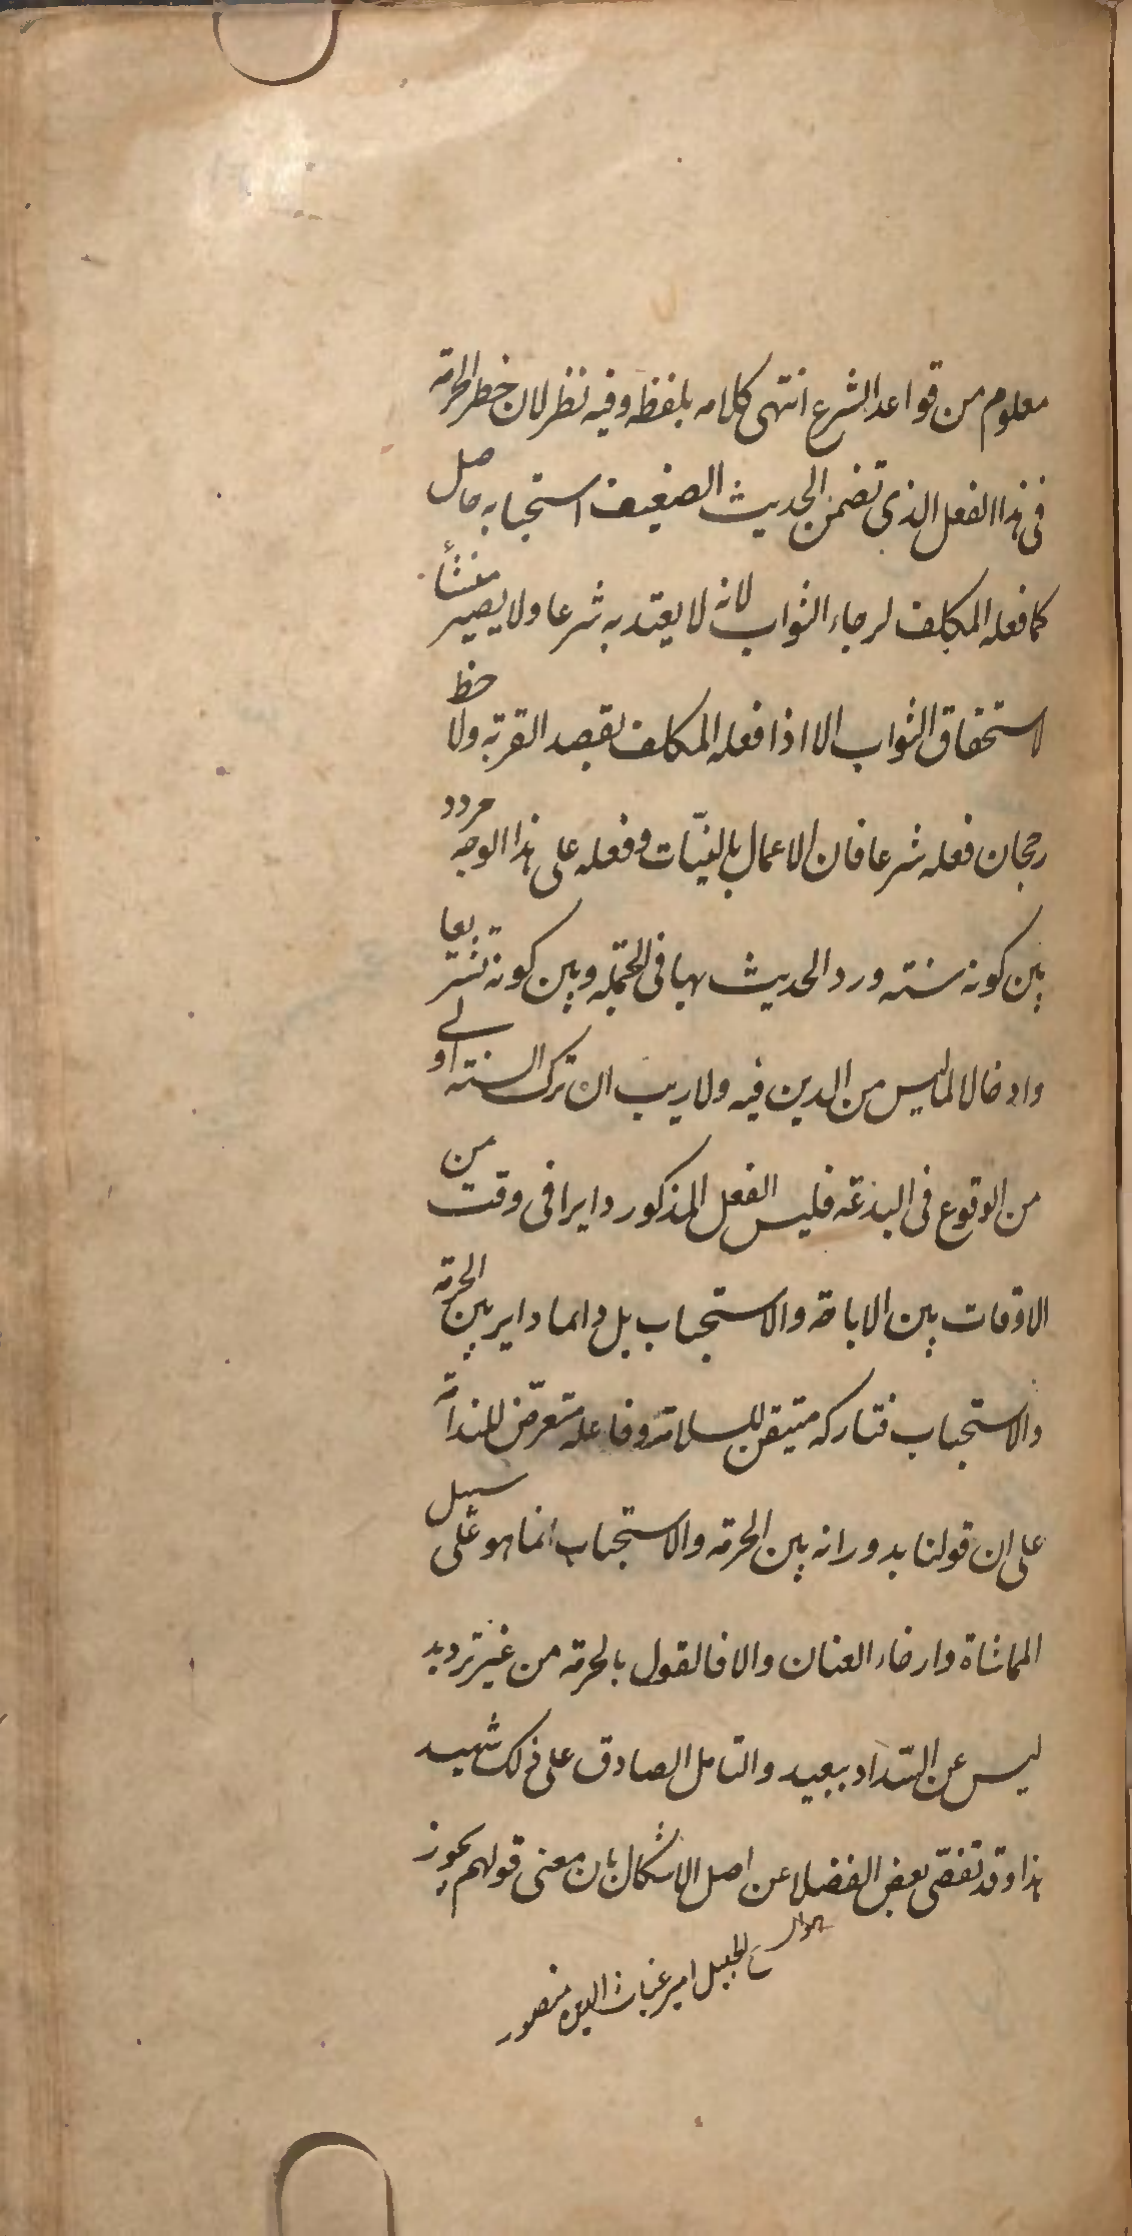 معلوم من قواعد الشرع انتهى كلامه بلفظه وفيه نظر لان خطر الحرمة
فى هذا الفعل الذى تضمن الحديث الضعيف استحبابه حاصل
كلما فعله المكلف لرجاء الثواب لانه لا يعتد به شرعا ولا يصير منشأ
لاستحقاق الثواب الا اذا فعله المكلف بقصد القربة ولاحظ
رجحان فعله شرعا فان الاعمال بالنيّات وفعله على هذا الوجه مردد
بين كونه سنته ورد الحديث بها فى الجملة وبين كونه تشريعا
وادخالا لما ليس من الدين فيه ولا ريب ان ترك السنته اولى
من الوقوع فى البدعة فليس الفعل المذكور دايرا فى وقت من
الاوقات بين الاباحة والاستحباب بل دائما داير بين الحرمة
والاستحباب فتاركه متيقن للسلامة وفاعله متعرّض للندامة
على ان قولنا بدورانه بين الحرمة والاستحباب انما هو على سبيل
المماشاة وارخاء العنان والا فالقول بالحرمة من غير ترديد
ليس عن السّداد ببعيد والتامل الصادق على ذلك شهيد
هذا وقد تفصّى بعض الفضلا عن اصل الاشكال بان معنى قولهم يجوز
الجليل امير غياث الدين منصور